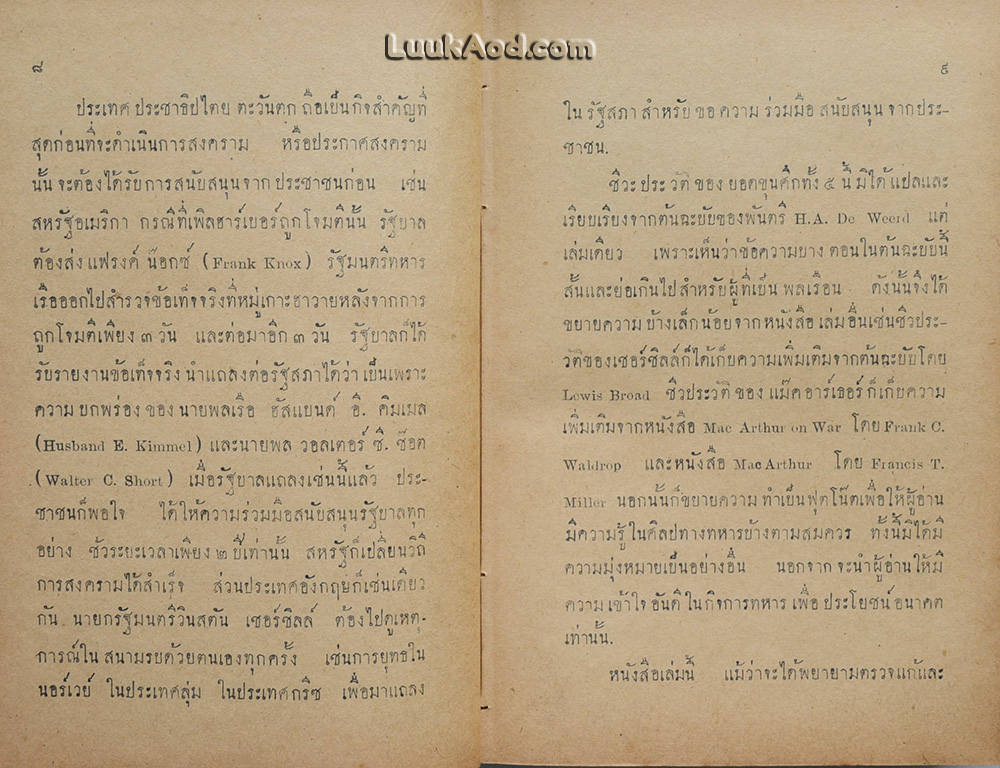 LuukAod.com
๘
ประเทศ ประชาธิปไตย ตะวันตก ถือเป็นกิจสำคัญที่
สุดก่อนที่จะดำเนินการสงคราม หรือประกาศสงคราม
นั้น จะต้องได้รับการสนับสนุนจาก ประชาชนก่อน เช่น
สหรัฐอเมริกา กรณีที่เพิลฮาร์เบอร์ถูกโจมตีนั้น รัฐบาล
ต้องส่ง แฟรงค์ น๊อกซ์ (Frank Knox) รัฐมนตรีทหาร
เรือออกไปสำรวจข้อเท็จจริงที่หมู่เกาะฮาวายหลังจากการ
ถูกโจมตีเพียง ๓ วัน และต่อมาอีก ๓ วัน รัฐบาลก็ได้
รับรายงานข้อเท็จจริง นำแถลงต่อรัฐสภาได้ว่า เป็นเพราะ
ความ บกพร่อง ของ นายพลเรือ ฮัสแบนด์ อี. คิมเมล
(Husband E. Kimmel) และนายพล วอลเตอร์ ซี. ช๊อต
(Walter C. Short) เมื่อรัฐบาลแถลงเช่นนี้แล้ว ประ-
ชาชนก็พอใจ ได้ให้ความร่วมมือสนับสนุนรัฐบาลทุก
อย่าง ชั่วระยะเวลาเพียง ๒ ปีเท่านั้น สหรัฐก็เปลี่ยนวิถี
การสงครามได้สำเร็จ ส่วนประเทศอังกฤษก็เช่นเดียว
กัน นายกรัฐมนตรีวินสตัน เชอร์ชิลล์ ต้องไปดูเหตุ-
การณ์ใน สนามรบด้วยตนเองทุกครั้ง เช่นการยุทธใน
นอร์เวย์ ในประเทศลุ่ม ในประเทศกรีซ เพื่อมาแถลง
๙
ใน รัฐสภา สำหรับ ขอ ความ ร่วมมือ สนับสนุน จาก ประ-
ชาชน.
ชีวะ ประ วัติ ของ ยอดขุนศึกทั้ง ๕ นี้ มิได้ แปลและ
เรียบเรียงจากต้นฉะบับของพันตรี H.A. De Weerd แต่
เล่มเดียว เพราะเห็นว่าข้อความบาง ตอนในต้นฉะบับนี้
สั้นและย่อเกินไป สำหรับผู้ที่เป็น พลเรือน ดังนั้นจึงได้
ขยายความ บ้างเล็กน้อยจาก หนังสือ เล่ม อื่นเช่นชีวประ-
วัติของเชอร์ชิลล์ก็ได้เก็บความเพิ่มเติมจากต้นฉะบับโดย
Lewis Broad ชีวประวัติ ของ แม๊ค อาร์เธอร์ ก็เก็บความ
เพิ่มเติมจากหนังสือ Mac Arthur on War โดย Frank C.
Waldrop และหนังสือ Mac Arthur โดย Francis T.
Miller นอกนั้นก็ขยายความ ทำเป็นฟุตโน๊ตเพื่อให้ผู้อ่าน
มีความรู้ ในศิลปทางทหารบ้างตามสมควร ทั้งนี้มิได้มี
ความมุ่งหมายเป็นอย่างอื่น นอกจาก จะนำผู้อ่านให้มี
ความ เข้าใจ อันดี ในกิจการทหาร เพื่อ ประโยชน์ อนาคต
เท่านั้น.
หนังสือเล่มนี้ แม้ว่าจะได้พยายามตรวจแก้และ